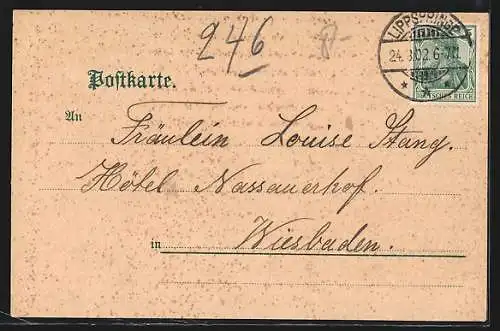 246
LIPPSPRINGE
24.8.02.6-7N.
DEUTSCHES REICH
Postkarte.
An
Fräulein Louise Stang.
Hôtel Nassauerhof.
in Wiesbaden.